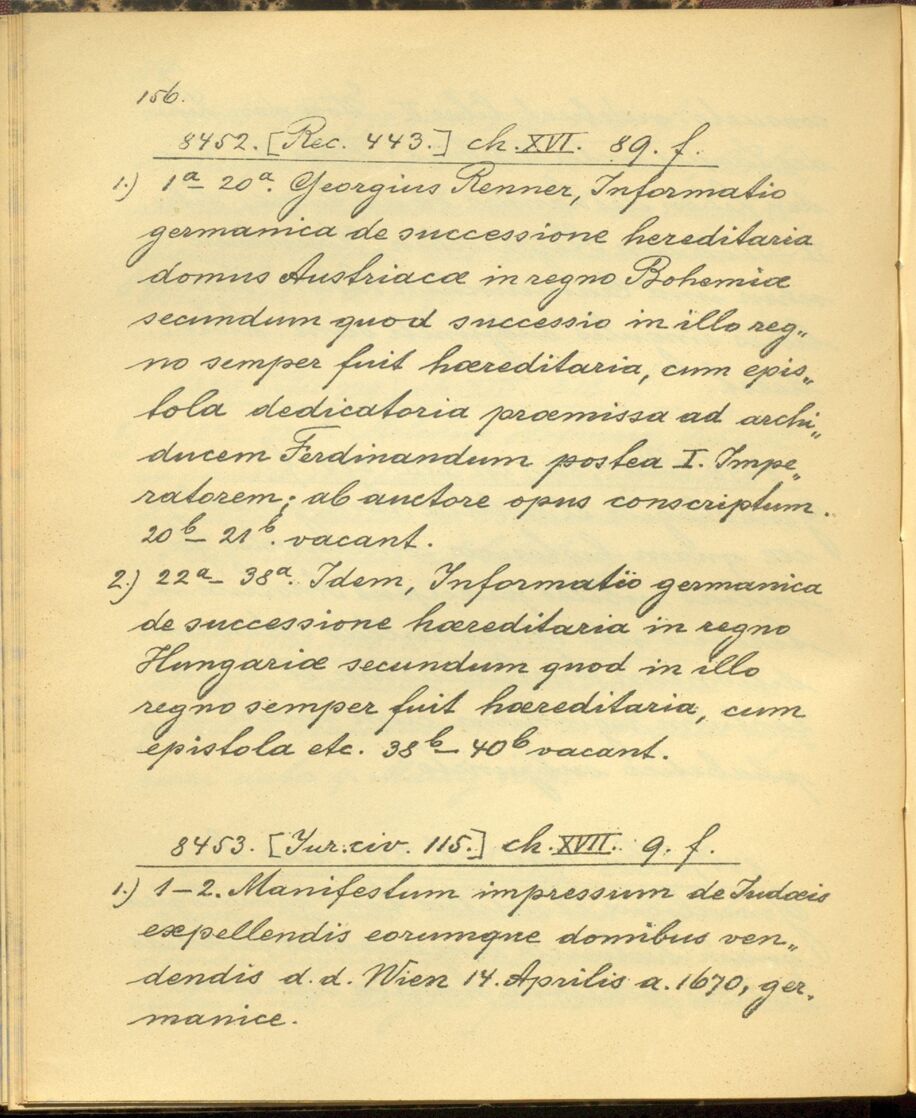 156.
8452. [Rec. 443.] ch. XVI. 89. f.
1.) 1ª– 20ª. Georgius Renner, Informatio
germanica de successione hereditaria
domus Austriacæ in regno Bohemiæ
secundum quod successio in illo reg„
no semper fuit hæreditaria, cum epis„
tola dedicatoria præmissa ad archi„
ducem Ferdinandum postea I. Impe„
ratorem; ab auctore opus conscriptum.
20ᵇ– 21ᵇ. vacant.
2.) 22ª– 38ª. Idem, Informatio germanica
de successione hæreditaria in regno
Hungariæ secundum quod in illo
regno semper fuit hæreditaria, cum
epistola etc. 38ᵇ– 40ᵇ vacant.
8453. [Jur. civ. 115.] ch. XVII. 9. f.
1.) 1–2. Manifestum impressium de Judæis
expellendis eorumque domibus ven„
dendis d. d. Wien 14. Aprilis a. 1670, ger„
manice.